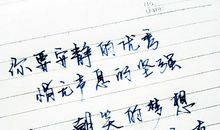 你要安静的优秀
悄无声息的坚强
朝笑的梦想